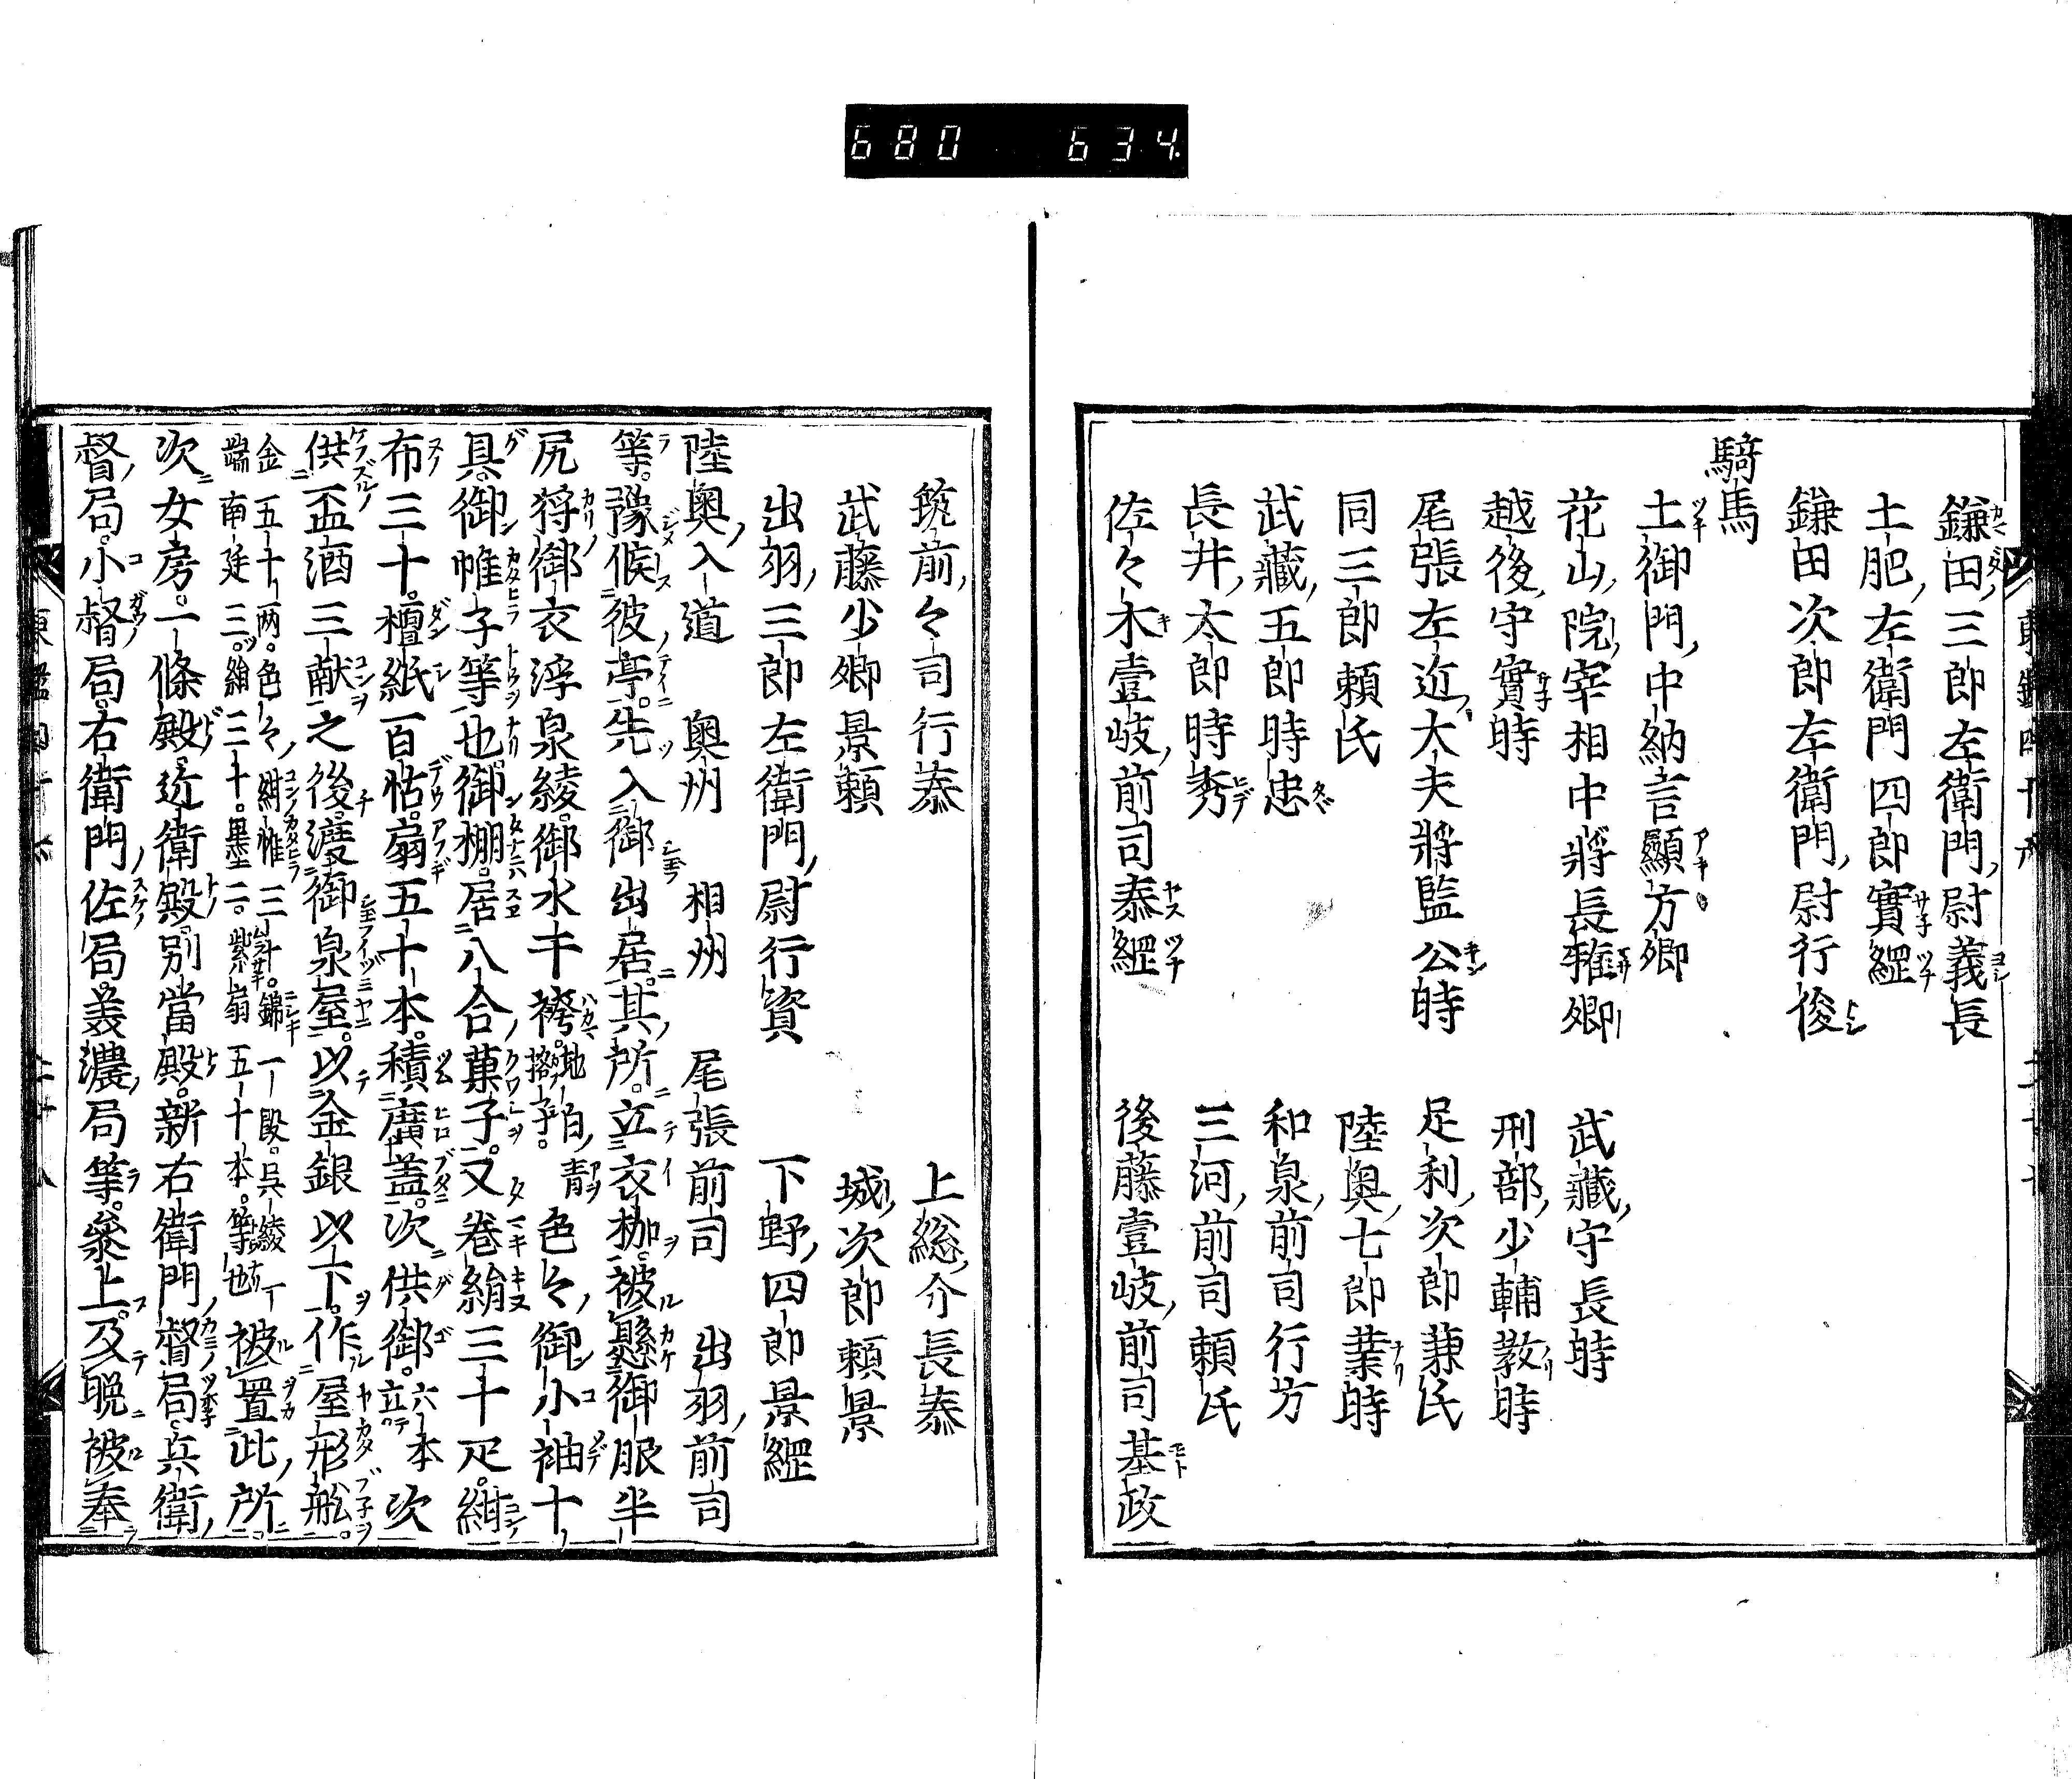 680 634
鎌田三郎左衛門尉義長
土肥左衛門四郎實經
鎌田次郎左衛門尉行俊
騎馬
土御門中納言顯方卿
花山院宰相中將長雅卿 武藏守長時
越後守實時 刑部少輔教時
尾張左近大夫將監公時 足利次郎兼氏
同三郎頼氏 陸奥七郎業時
武藏五郎時忠 和泉前司行方
長井太郎時秀 三河前司頼氏
佐々木壹岐前司泰經 後藤壹岐前司基政
筑前々司行泰 上総介長泰
武藤少卿景頼 城次郎頼景
出羽三郎左衛門尉行資 下野四郎景經
陸奥入道 奥州 相州 尾張前司 出羽前司
等。豫候彼亭。先入御出居。其所。立衣枷。被懸御服半
尻狩御衣浮泉綾。御水干袴。地白青格子。色々御小袖十
具。御帷子等也。御棚。居八合菓子。又巻絹三十疋。紺
布三十。檀紙百帖。扇五十本。積廣盖。次供御。六本立。次
供盃酒三献之後。渡御泉屋。以金銀以下。作屋形舩。
金五十両。色々紺帷三十。錦一段。呉綾一
端南廷三。絹三十。墨二。紫扇五十本。等也 被置此所。
次女房。一條殿。近衛殿。別當殿。新右衛門督局。兵衛
督局。小督局。右衛門佐局。美濃局等。參上。及晩被奉